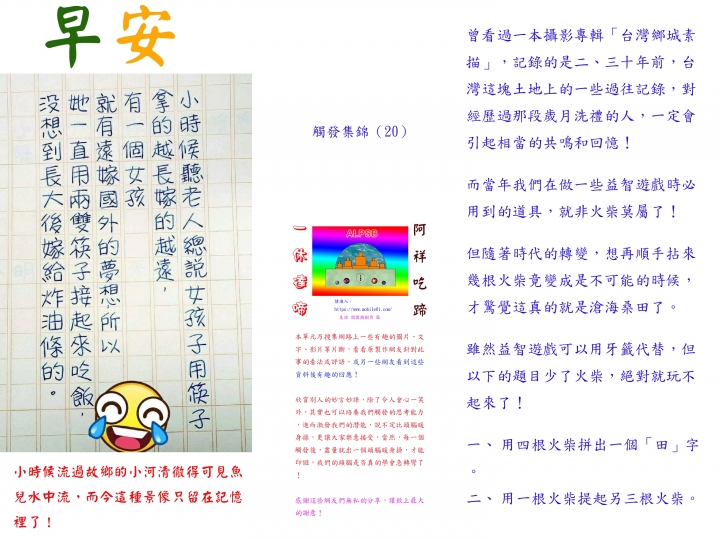 早安
小時候聽老人總說女孩子用筷子
拿的越長嫁的越遠,
有一個女孩
就有遠嫁國外的夢想所以
她一直用兩雙筷子接起來吃飯,
沒想到長大後嫁給炸油條的。
小時候流過故鄉的小河清徹得可見魚
兒水中流,而今這種景像只留在記憶
裡了!
觸發集錦(20)
一休達啼
ALPSB
阿祥吃蹄
https://www.mobile01.com/
本單元乃搜集網路上一些有趣的圖片、文
字、影片等片斷,看看原製作網友針對此
事的看法或評語,或另一些網友看到這些
資料後有趣的回應!
欣賞別人的妙言妙語,除了令人會心一笑
外,其實也可以培養我們觸發的思考能力
,進而激發我們的潛能,說不定比頭腦硬
身操,更讓大家樂意接受。當然,每一個
觸發後,盡量就出一個頭腦硬身操,才能
印證,我們的頭腦是否真的學會急轉彎了
!
感謝這些網友們無私的分享,謹致上最大
的謝意!
曾看過一本攝影專輯「台灣鄉城素
描」,記錄的是二、三十年前,台
灣這塊土地上的一些過往記錄,對
經歷過那段歲月洗禮的人,一定會
引起相當的共鳴和回憶!
而當年我們在做一些益智遊戲時必
用到的道具,就非火柴莫屬了!
但隨著時代的轉變,想再順手拈來
幾根火柴竟變成是不可能的時候,
才驚覺這真的就是滄海桑田了。
雖然益智遊戲可以用牙籤代替,但
以下的題目少了火柴,絕對就玩不
起來了!
一、 用四根火柴拼出一個「田」字
。
二、 用一根火柴提起另三根火柴。